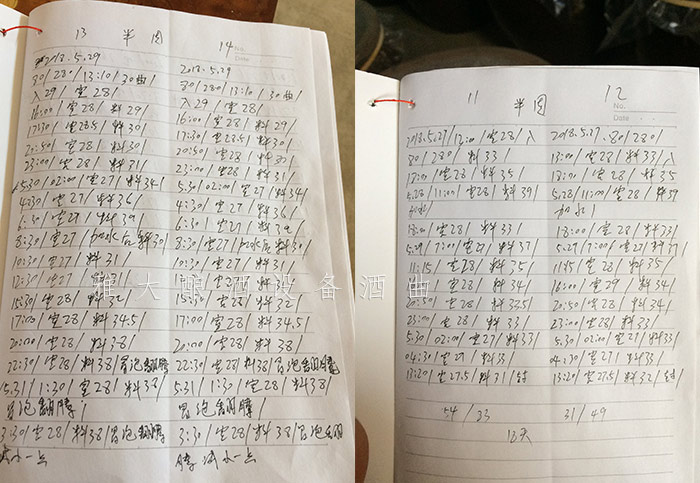 13 半肉 14
No.
Date
2018.5.29
30/28/13:10/30曲/
入29/室28/
16:00/室28/料29/
17:30/室28.5/料30/
20:50/室28/料30/
23:00/室28/料31/
5.30/02:00/室27/料34/
4:30/室27/料36/
6:30/室27/料39/
8:30/室27/加水后料30/
10:30/室27/料31/
12:30/室27/料31/
15:30/室28/料32/
17:00/室28/料34.5/
20:00/室28/料38/
22:30/室28/料38/冒泡翻腾
5.31/1:30/室28/料38/
冒泡翻腾/
3:30/室28/料38/冒泡翻腾
减小一点
2018.5.29
30/280/13:10/30曲/
入29/室28/
16:00/室28/料29/
17:30/室28.5/料30/
20:50/室28/料30/
23:00/室28/料31/
5.30/02:00/室27/料34/
4:30/室27/料36/
6:30/室27/料39/
8:30/室27/加水后料30/
10:30/室27/料31/
室27/料31/
15:30/室28/料32/
17:00/室28/料34.5/
20:00/室28/料38/
22:30/室28/料38/冒泡翻腾
5.31/1:30/室28/料38/
冒泡翻腾/
3:30/室28/料38/冒泡翻
腾减小一点
11 半肉 12
No.
Date
2018.5.27/12:00/室28/入
30/280/料33/
18:00/室28/料35/
5.28/11:00/室28/料39/
加水/
18:00/室28/料33/
5.29/7:00/室27/料37/
11:15/室28/料35/
料34/
20:50/室28/料32.5/
23:00/室28/料33/
5.30/02:00/室27/料33/
04:30/室27/料33/
13:20/室27.5/料31/封
54/33
2018.5.27.30/280/
13:00/室28/料33/入
18:00/室28/料35/
5.28/11:00/室28/料39
加水/
18:00/室28/料33/
5.29/7:00/室27/料37/
11:15/室28/料35/
16:00/室29/料34/
20:50/室28/料34/
23:00/室28/料33/
5.30/02:00/室27/料33/
04:30/室27/料33/
13:20/室27.5/料32/封
31/49
12天
雅大酿酒设备酒曲